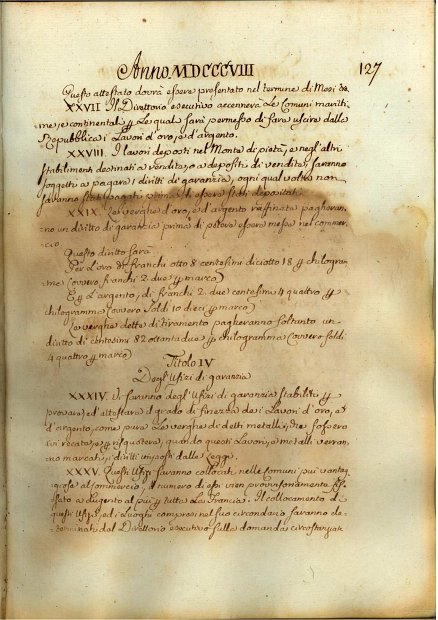 Anno MDCCCVIII 127
Questo attestato dovrà essere presentato nel termine di Mesi
XXVII. Il Direttorio esecutivo accennerà Le Comuni maritti-
me, e continentali Le quali sarà permesso di fare uscire dalla
Repubblica i Lavori d'oro, e d'argento.
XXVIII. I lavori deposti nel Monte di pietà, e negl'altri
stabilimenti destinati a vendite, o a depositi di vendite, saranno
soggetti a pagare i diritti di garanzia, ogni qual volta non
saranno stati pagati prima d'essere stati depositati.
XXIX. Le verghe d'oro, e d'argento raffinate pagheran-
no un diritto di garanzia prima di potere essere messe nel commer-
cio
Questo diritto sarà
Per L'oro di franchi otto 8 centesimi diciotto 18 chilogra-
me (ovvero franchi 2. due marco)
E L'argento, di franchi 2. due centesimi 4 quattro
chilogramme (ovvero soldi 10 dieci marco)
Le verghe dette di tiramento pagheranno soltanto un
diritto di centesimi 82 ottantadue chilogramma (ovvero soldi
4 quattro marco)
Titolo IV
Degl'Ufizi di garanzia
XXXIV. Vi saranno degl'Ufizi di garanzia stabiliti
provare, ed attestare il grado di finezza dei Lavori d'oro, e
d'argento, come pure Le verghe di detti metalli, che
recate, e risquotere, quando questi Lavori, e metalli verran-
no marcati, i diritti imposti dalla Legge.
XXXV. Questi Ufizi saranno collocati nelle Comuni più vantag-
giose al commercio, il numero di essi vien provvisoriamente
fissato a dugento al più tutta La Francia: Il collocamento di
questi Ufizi, ed i Luoghi compresi nel suo circondario saranno de-
terminati dal Direttorio esecutivo sulla domanda